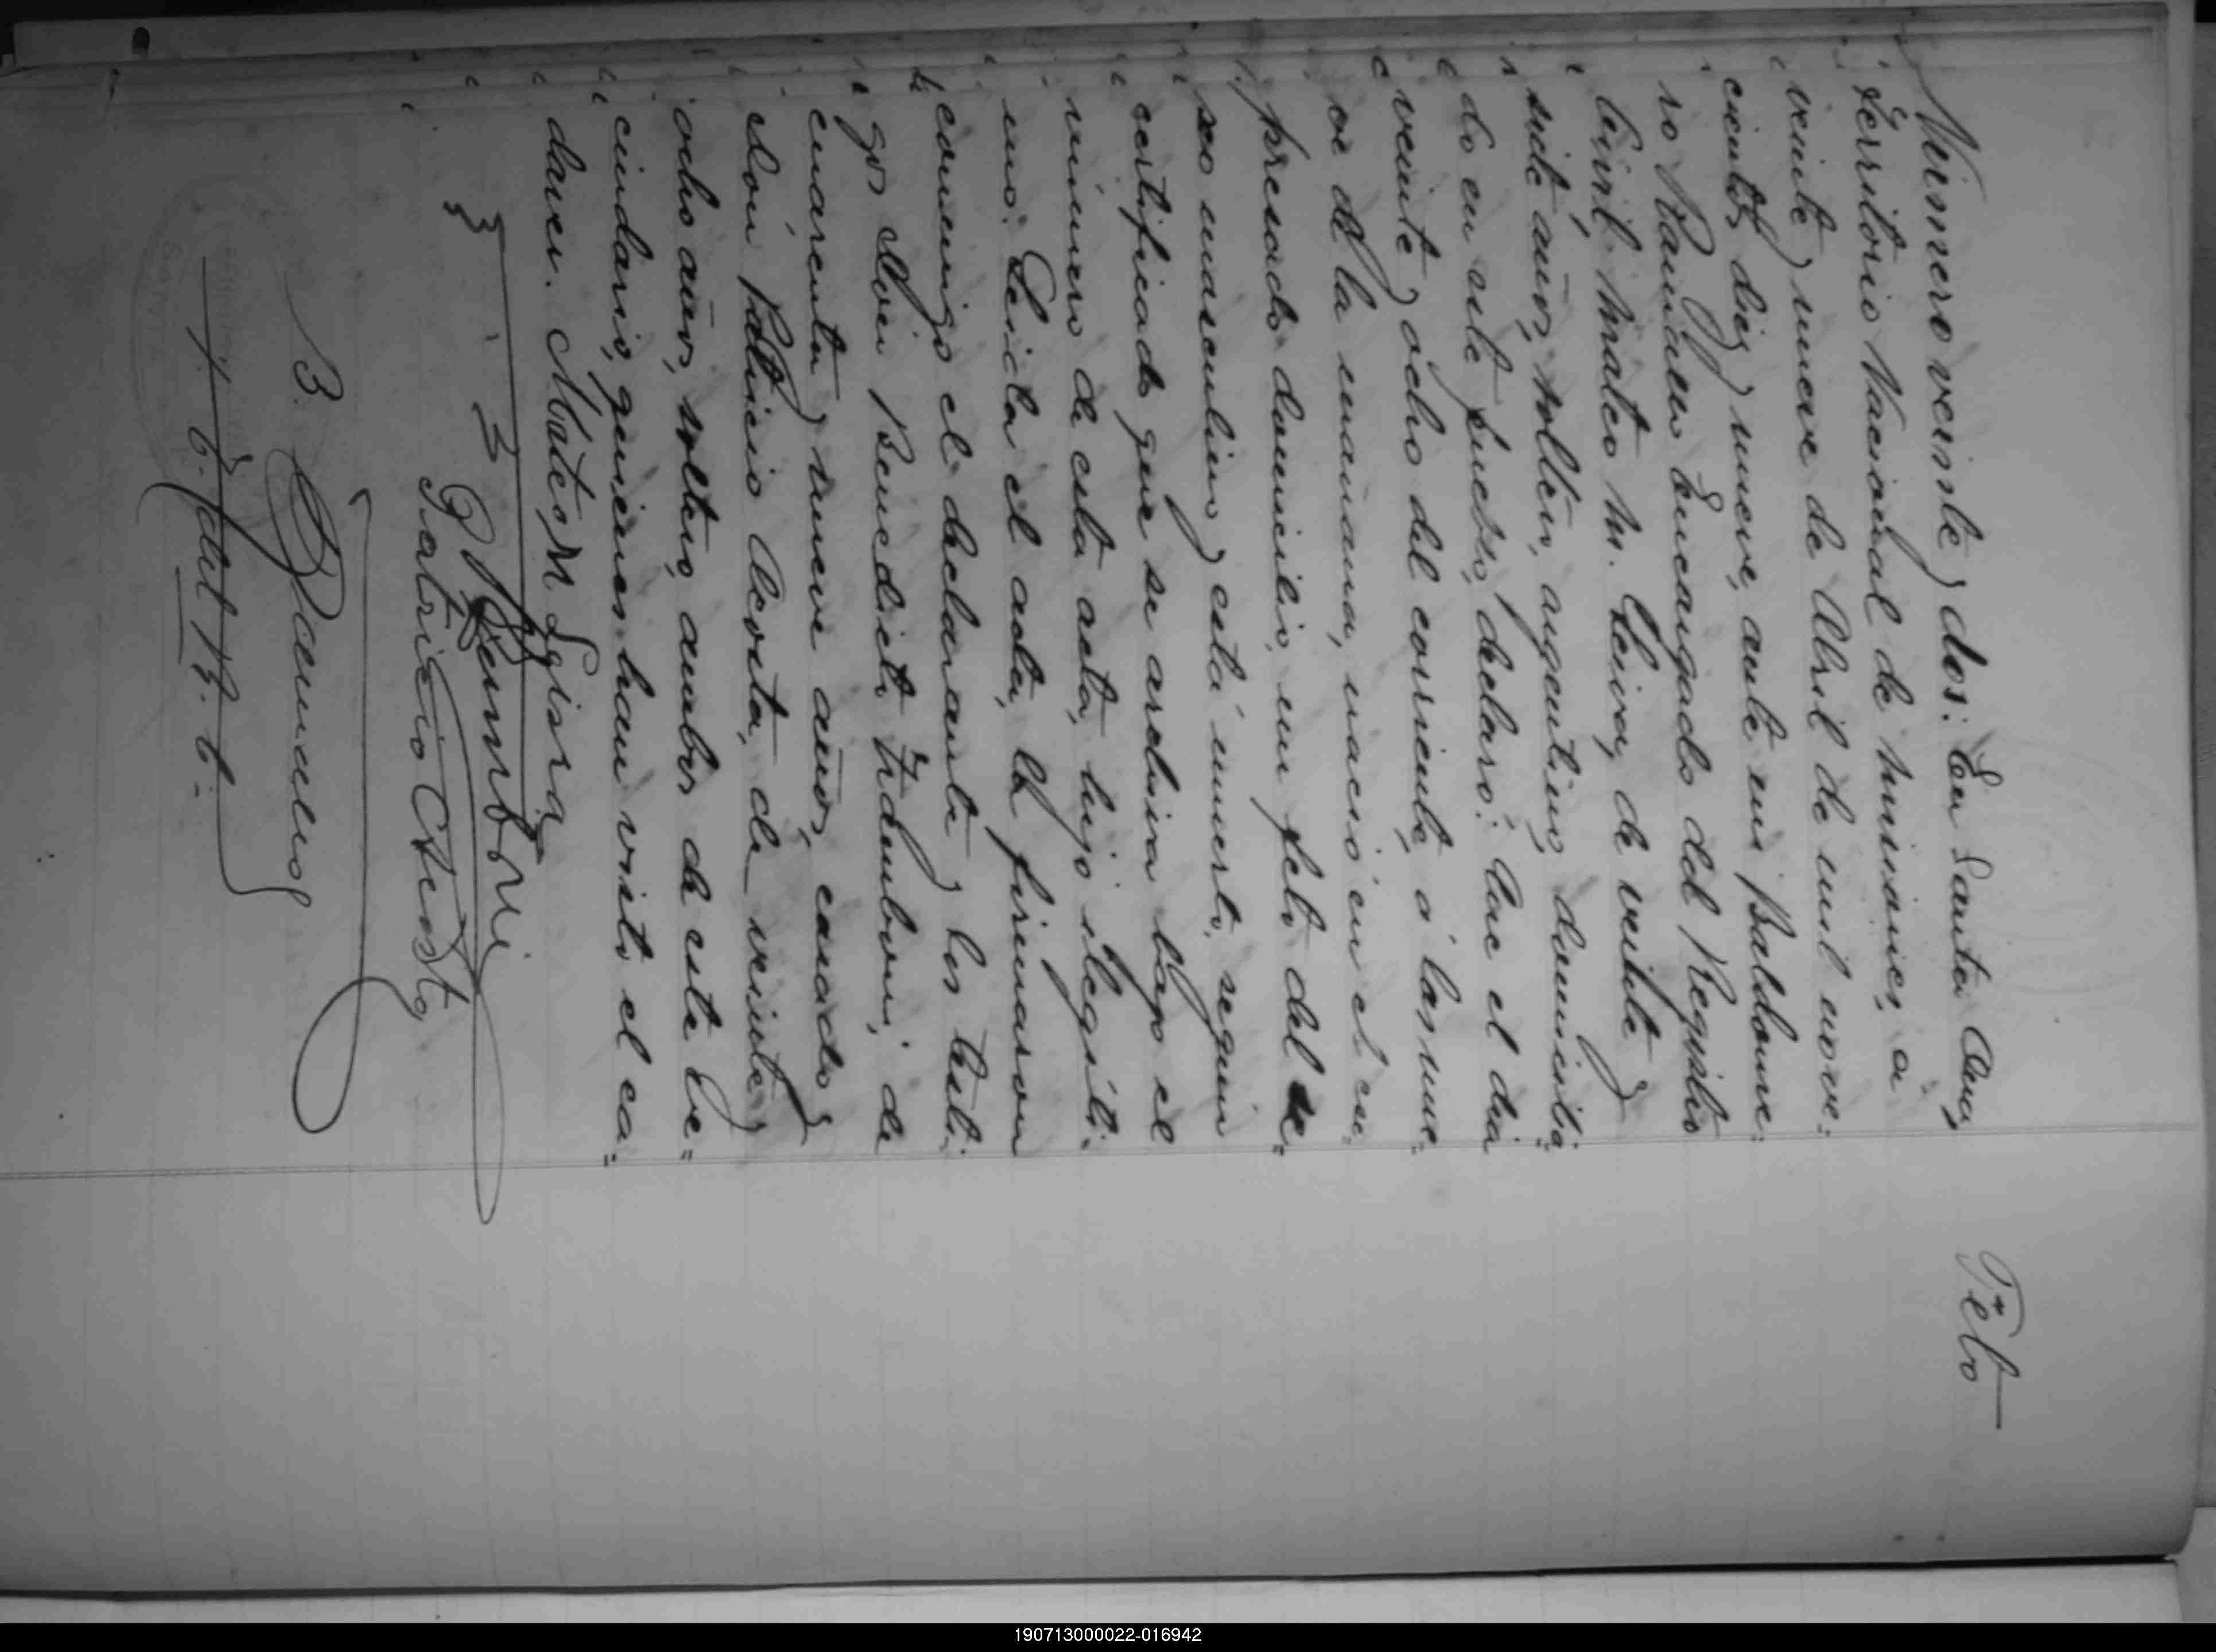 Feto
Número veinte y dos: En Santa Ana,
Territorio Nacional de Misiones, á
veinte y nueve de Abril de mil nove=
cientos diez y nueve, ante mi Baldome=
ro Bamaeus Encargado del Registro
Civil, Mateo M. Leiva, de veinte y
siete años, soltero, argentino, domicilia=
do en este pueblo, declaró: Que el dia
veinte y ocho del corriente, á las nue=
ve de la mañana, nació en el ex=
presado domicilio, un feto del se=
xo masculino y está muerto, segun
certificado que se archiva bajo el
número de esta acta, hijo ilegíti=
mo. Leida el acta, la firmaron
conmigo el declarante y los testi=
gos Don Benedicto Tidemboni, de
cuarenta y nueve años, casado y
Don Patricio Acosta, de veinte y
ocho años, soltero, ambos de este ve=
cindario, quienes han visto el ca=
daver. Mateo M Leiva
Patricio Acosta
B. Bamaeus
E. del R. C.
190713000022-016942